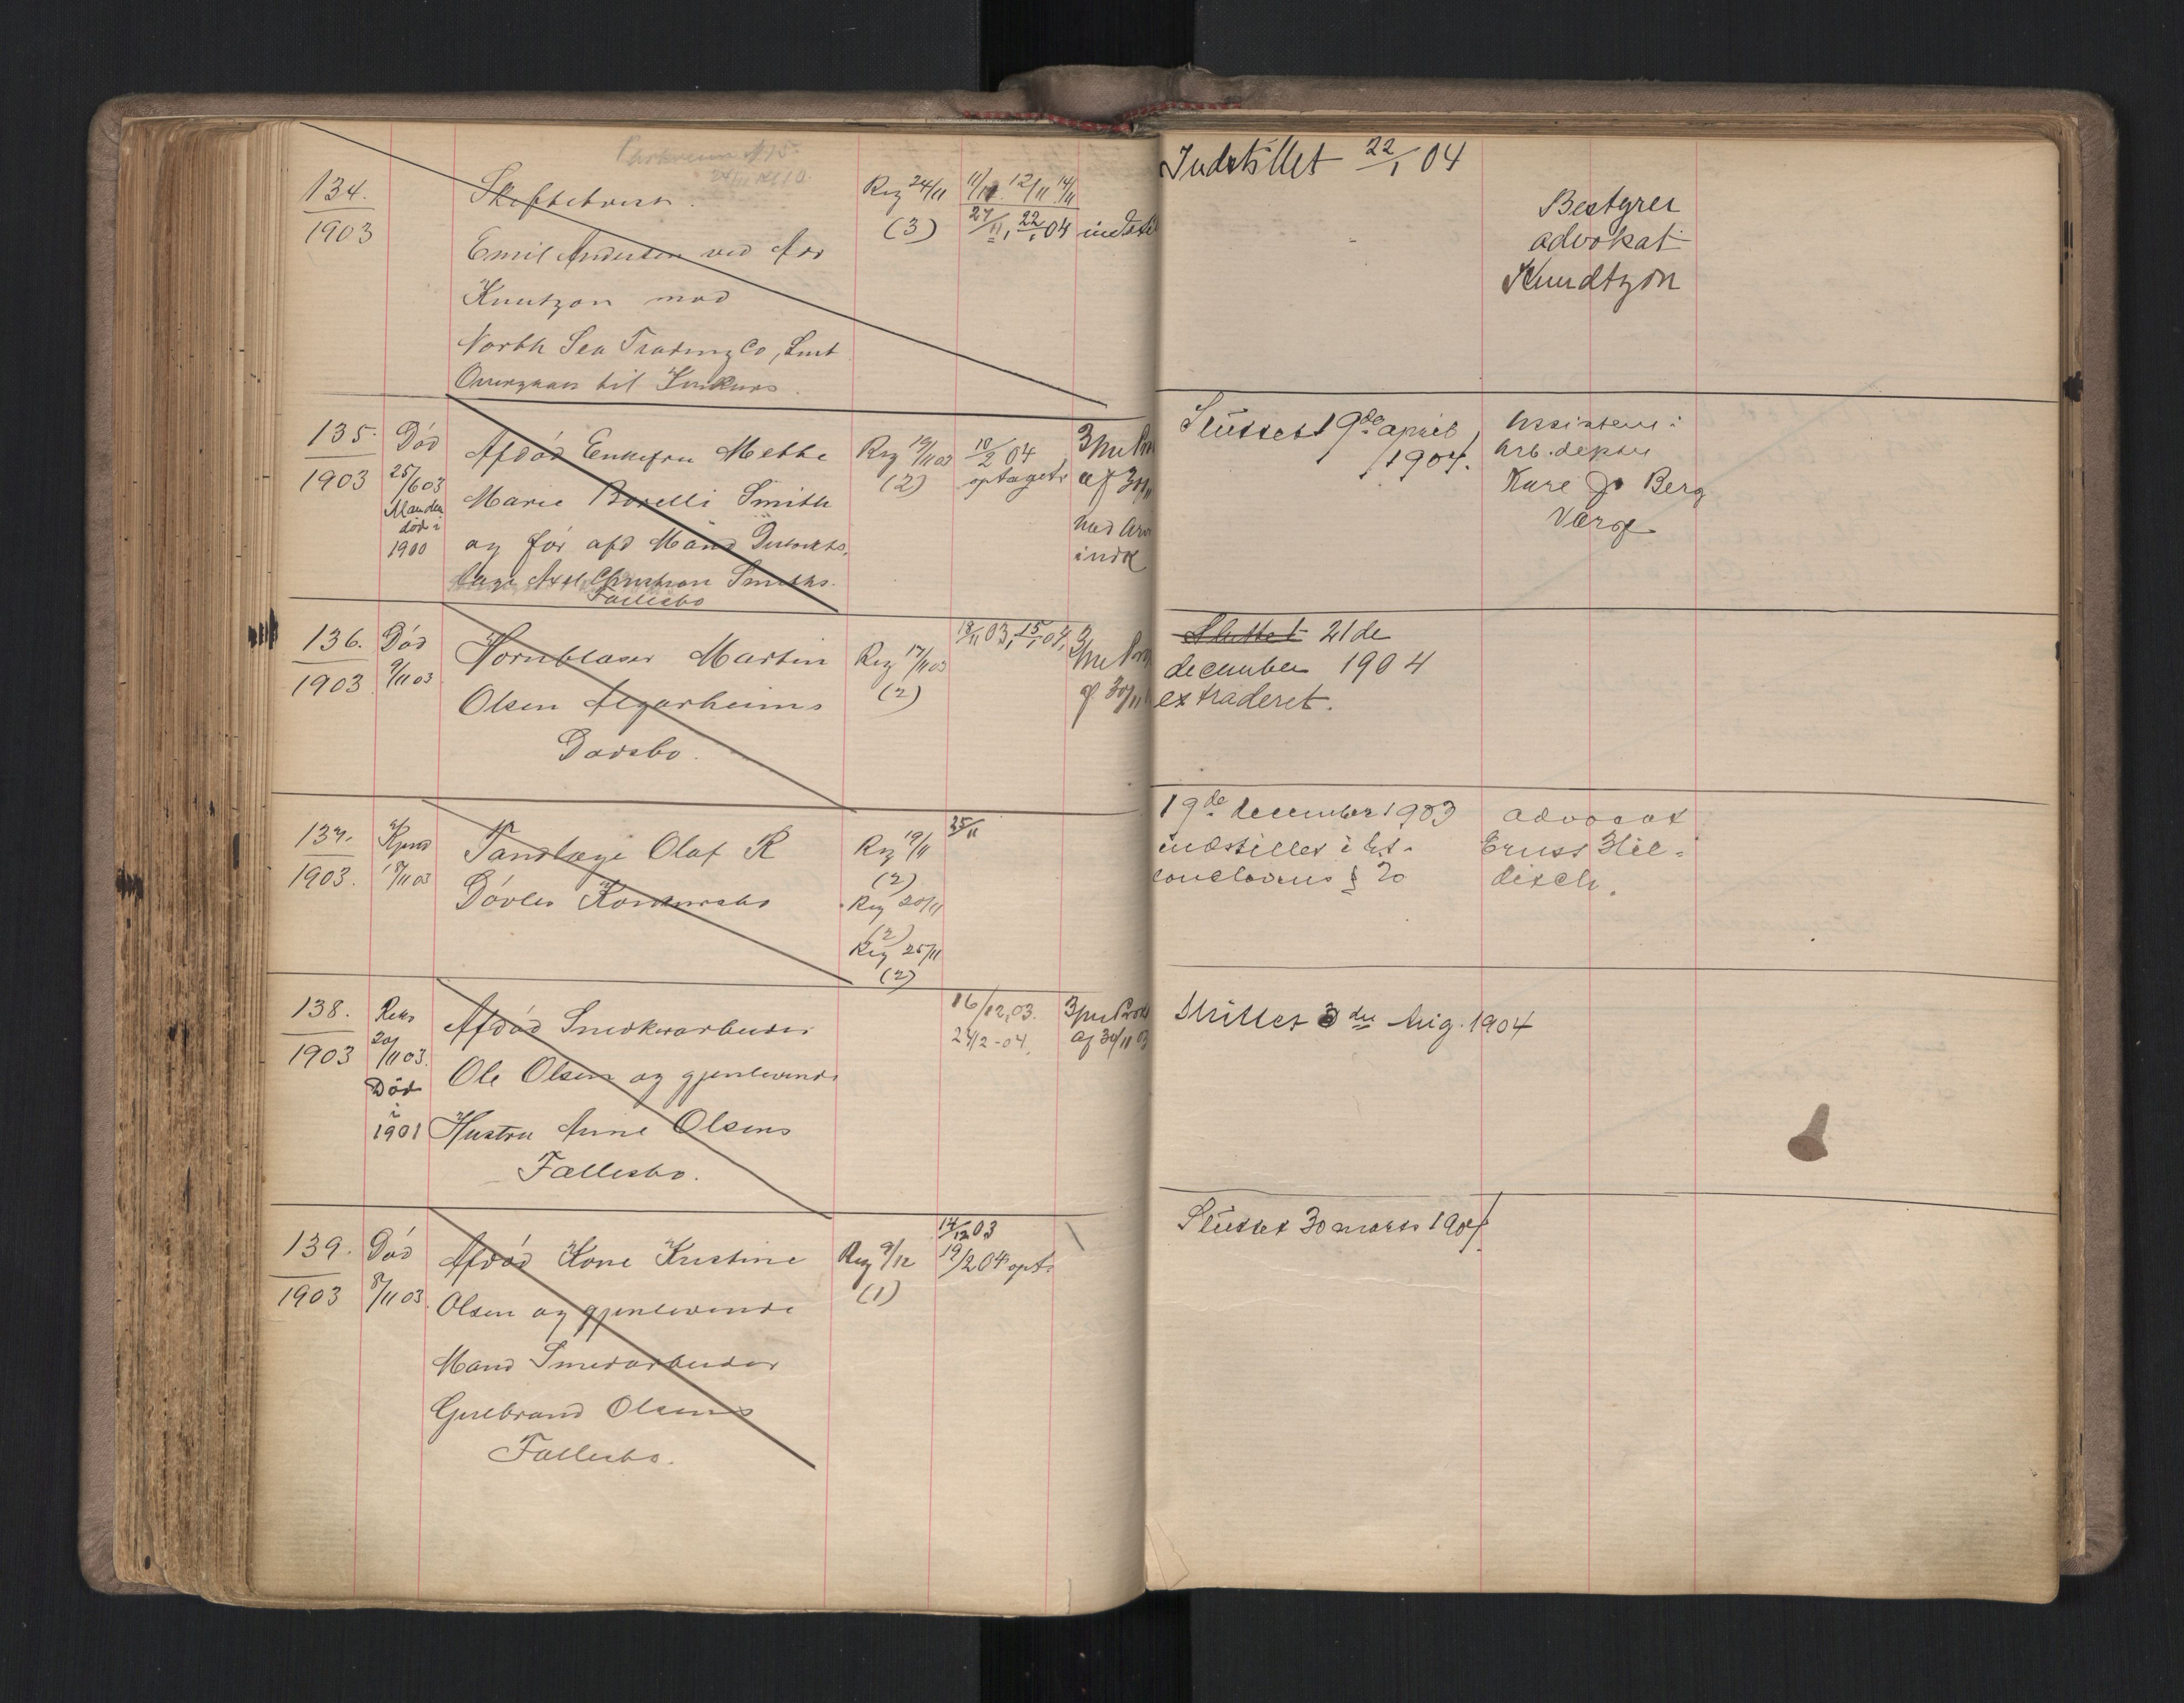 134.
1903
Skiftetvist.
Emil Andersen ved Adv
Knutzon mod
North Sea Trading Co, Lmt
Overgaaet til Konkurs.
Reg 24/11
(3)
11/11 12/11 14/11
27/11, 22/1 04 indstil
Indstillet 22/1 04
Bestyrer
advokat
Knudtzon
135.
1903
Død
25/6 03
Manden
død i
1900
Afdød Enkefru Mette
Marie Borelli Smith
og før afd Mand
læge Axel Christian Smiths
Fællesbo
Reg 19/11 03
(2)
10/2 04
optaget
3 mu Pro
af 30/11
Sluttet 19de april
1904.
Assistent i
Arb. depter
Kare Jo Berg
Værge
136.
1903
Død
9/11 03
Hornblæser Martin
Olsen Algarheims
Dødsbo.
Reg 17/11 03
(2)
18/11 03, 15/1 04,
3 mu Pro
af 30/11
Sluttet 21de
december 1904
extraderet.
137.
1903.
18/11 03
Tandlæge Olaf R
Døvles Konkursbo
Reg 19/11
(2)
Reg 20/11
(2)
Reg 25/11
(2)
25/11
19de december 1903
indstillet i
conclovens § 20
advocat
Ernst Hil-
disch.
138.
1903
Rekv
20/11 03.
Død
i
1901
Afdød Snedkerarbeider
Ole Olsen og gjenlevende
Hustru Anne Olsens
Fællesbo.
16/12 03.
24/2-04.
3 mu Prok
af 30/11 03
Sluttet 3die Aug. 1904
139.
1903
Død
8/11 03.
Afdød Kone Kristine
Olsen og gjenlevende
Mand Smedarbeider
Gulbrand Olsens
Fællesbo.
Reg 9/12
(1)
14/12 03
19/2 04 opt.
Sluttet 30 marts 1904.